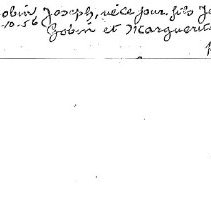 obin Joseph, né ce jour. fils J
-10-56 Gobin et Marguerit